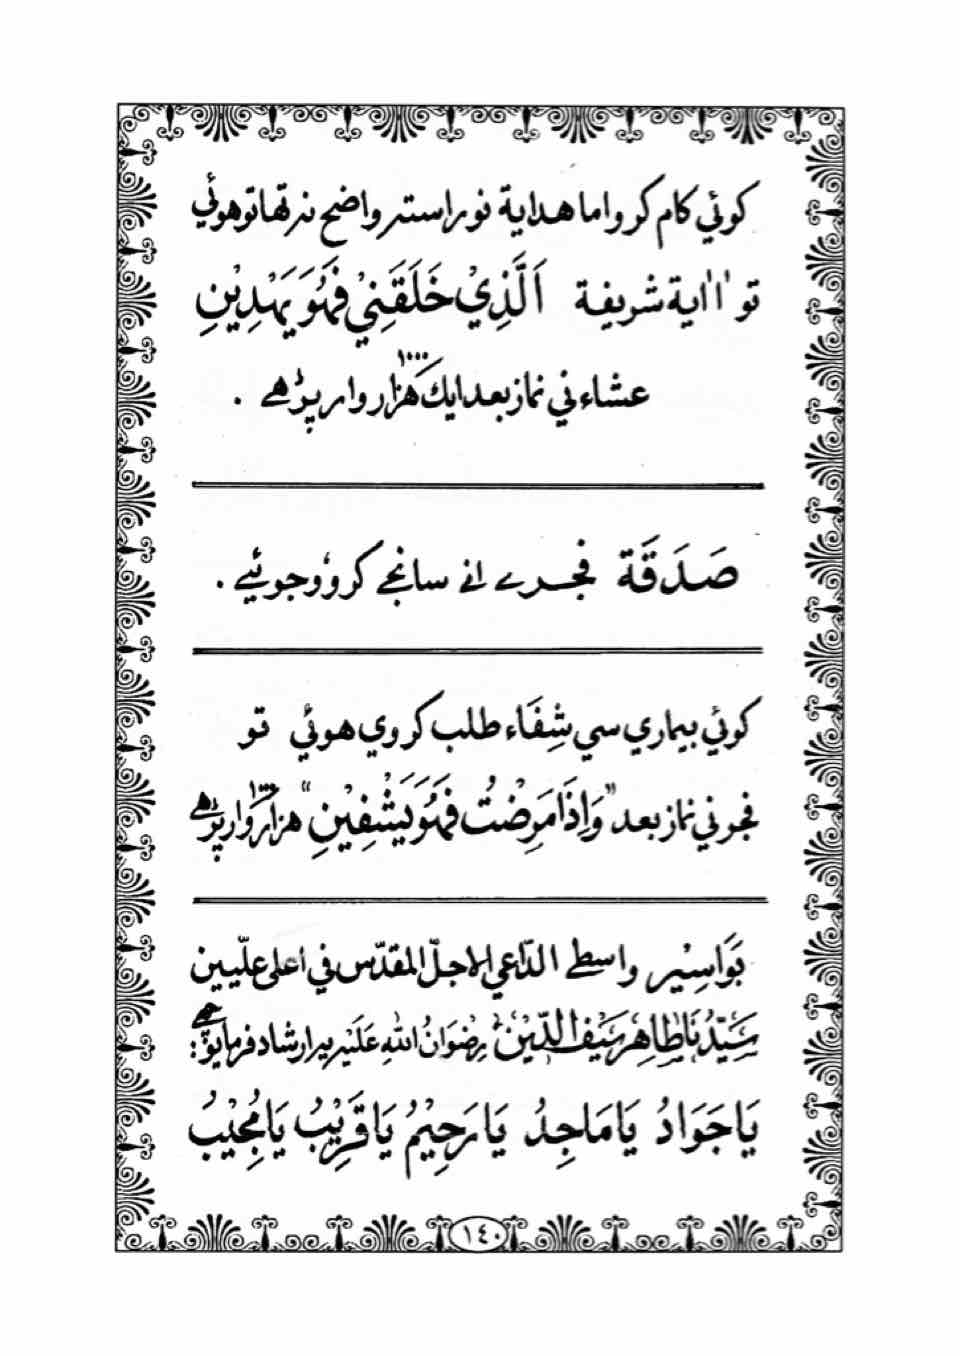 كوئي كام كرواما هداية نو راسته واضح نه تهاتو هوئي
تو اٰاية شريفة اَلَّذِيْ خَلَقَنِيْ فَهُوَ يَهْدِيْنِ
١٠٠٠
عشاء ني نماز بعد ايك هزار وار پڑهے .
صَدَقَة فجرے انے سانجے كروو جوئيے .
كوئي بيماري سي شِفَاء طلب كروي هوئي تو
فجرني نماز بعد "وَاِذَا مَرِضْتُ فَهُوَ يَشْفِيْنِ" هزار وار پڑهے
بَوَاسِيْر واسطے الدّاعي الاجلّ المقدّس في اعلى علّيين
سَيِّدُنَا طَاهِر سَيْفُ الدِّيْن رِضْوَانُ اللهِ عَلَيْهِ يه ارشاد فرمايو چهے :
يَا جَوَادُ يَا مَاجِدُ يَا رَحِيْمُ يَا قَرِيْبُ يَا مُجِيْبُ
١٤٠